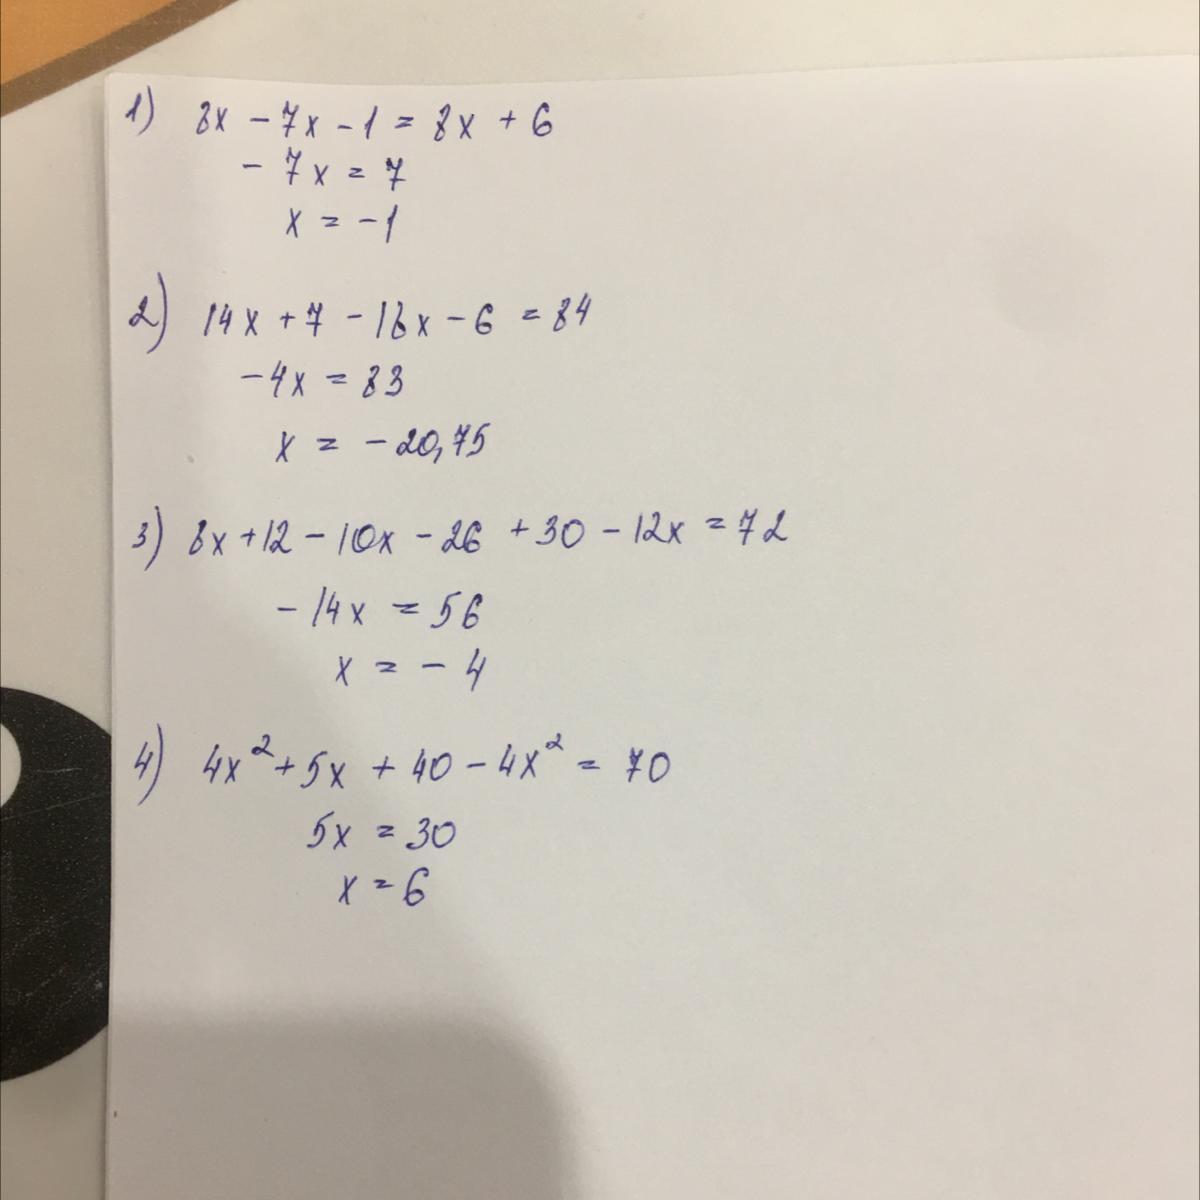 1) 8x - 7x - 1 = 8x + 6
- 7x = 7
x = -1
2) 14x + 7 - 18x - 6 = 84
-4x = 83
x = - 20,75
3) 8x + 12 - 10x - 26 + 30 - 12x = 72
- 14x = 56
x = - 4
4) 4x² + 5x + 40 - 4x² = 70
5x = 30
x = 6